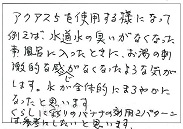 アクアスを使用する様になって
例えば水道水の臭いがなくなった
事、風呂に入ったときに、お湯の刺
激的な感じがなくなったような気が
します。水が全体的にまろやかに
なったと思います。
くらしに彩りのバナナの効用2パターン
は参考にしたいと思います。